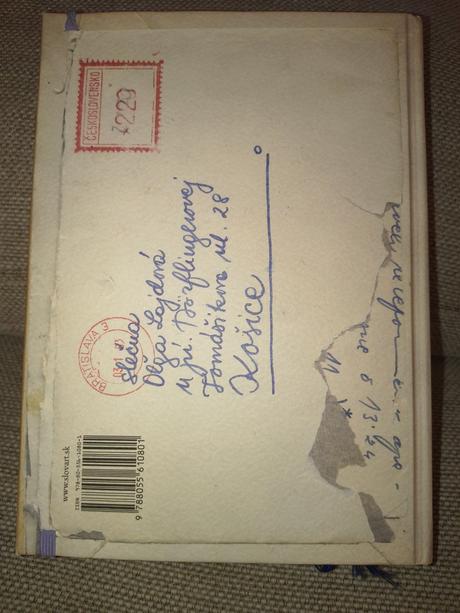 ČESKOSLOVENSKO
229
BRATISLAVA 3
Slečna
Oľga Lajdová
u pí. Dörflingerovej
Tomášikova ul. 28
Košice
11
13.24
www.slovart.sk
ISBN 978-80-556-1080-1
9 788055 610801